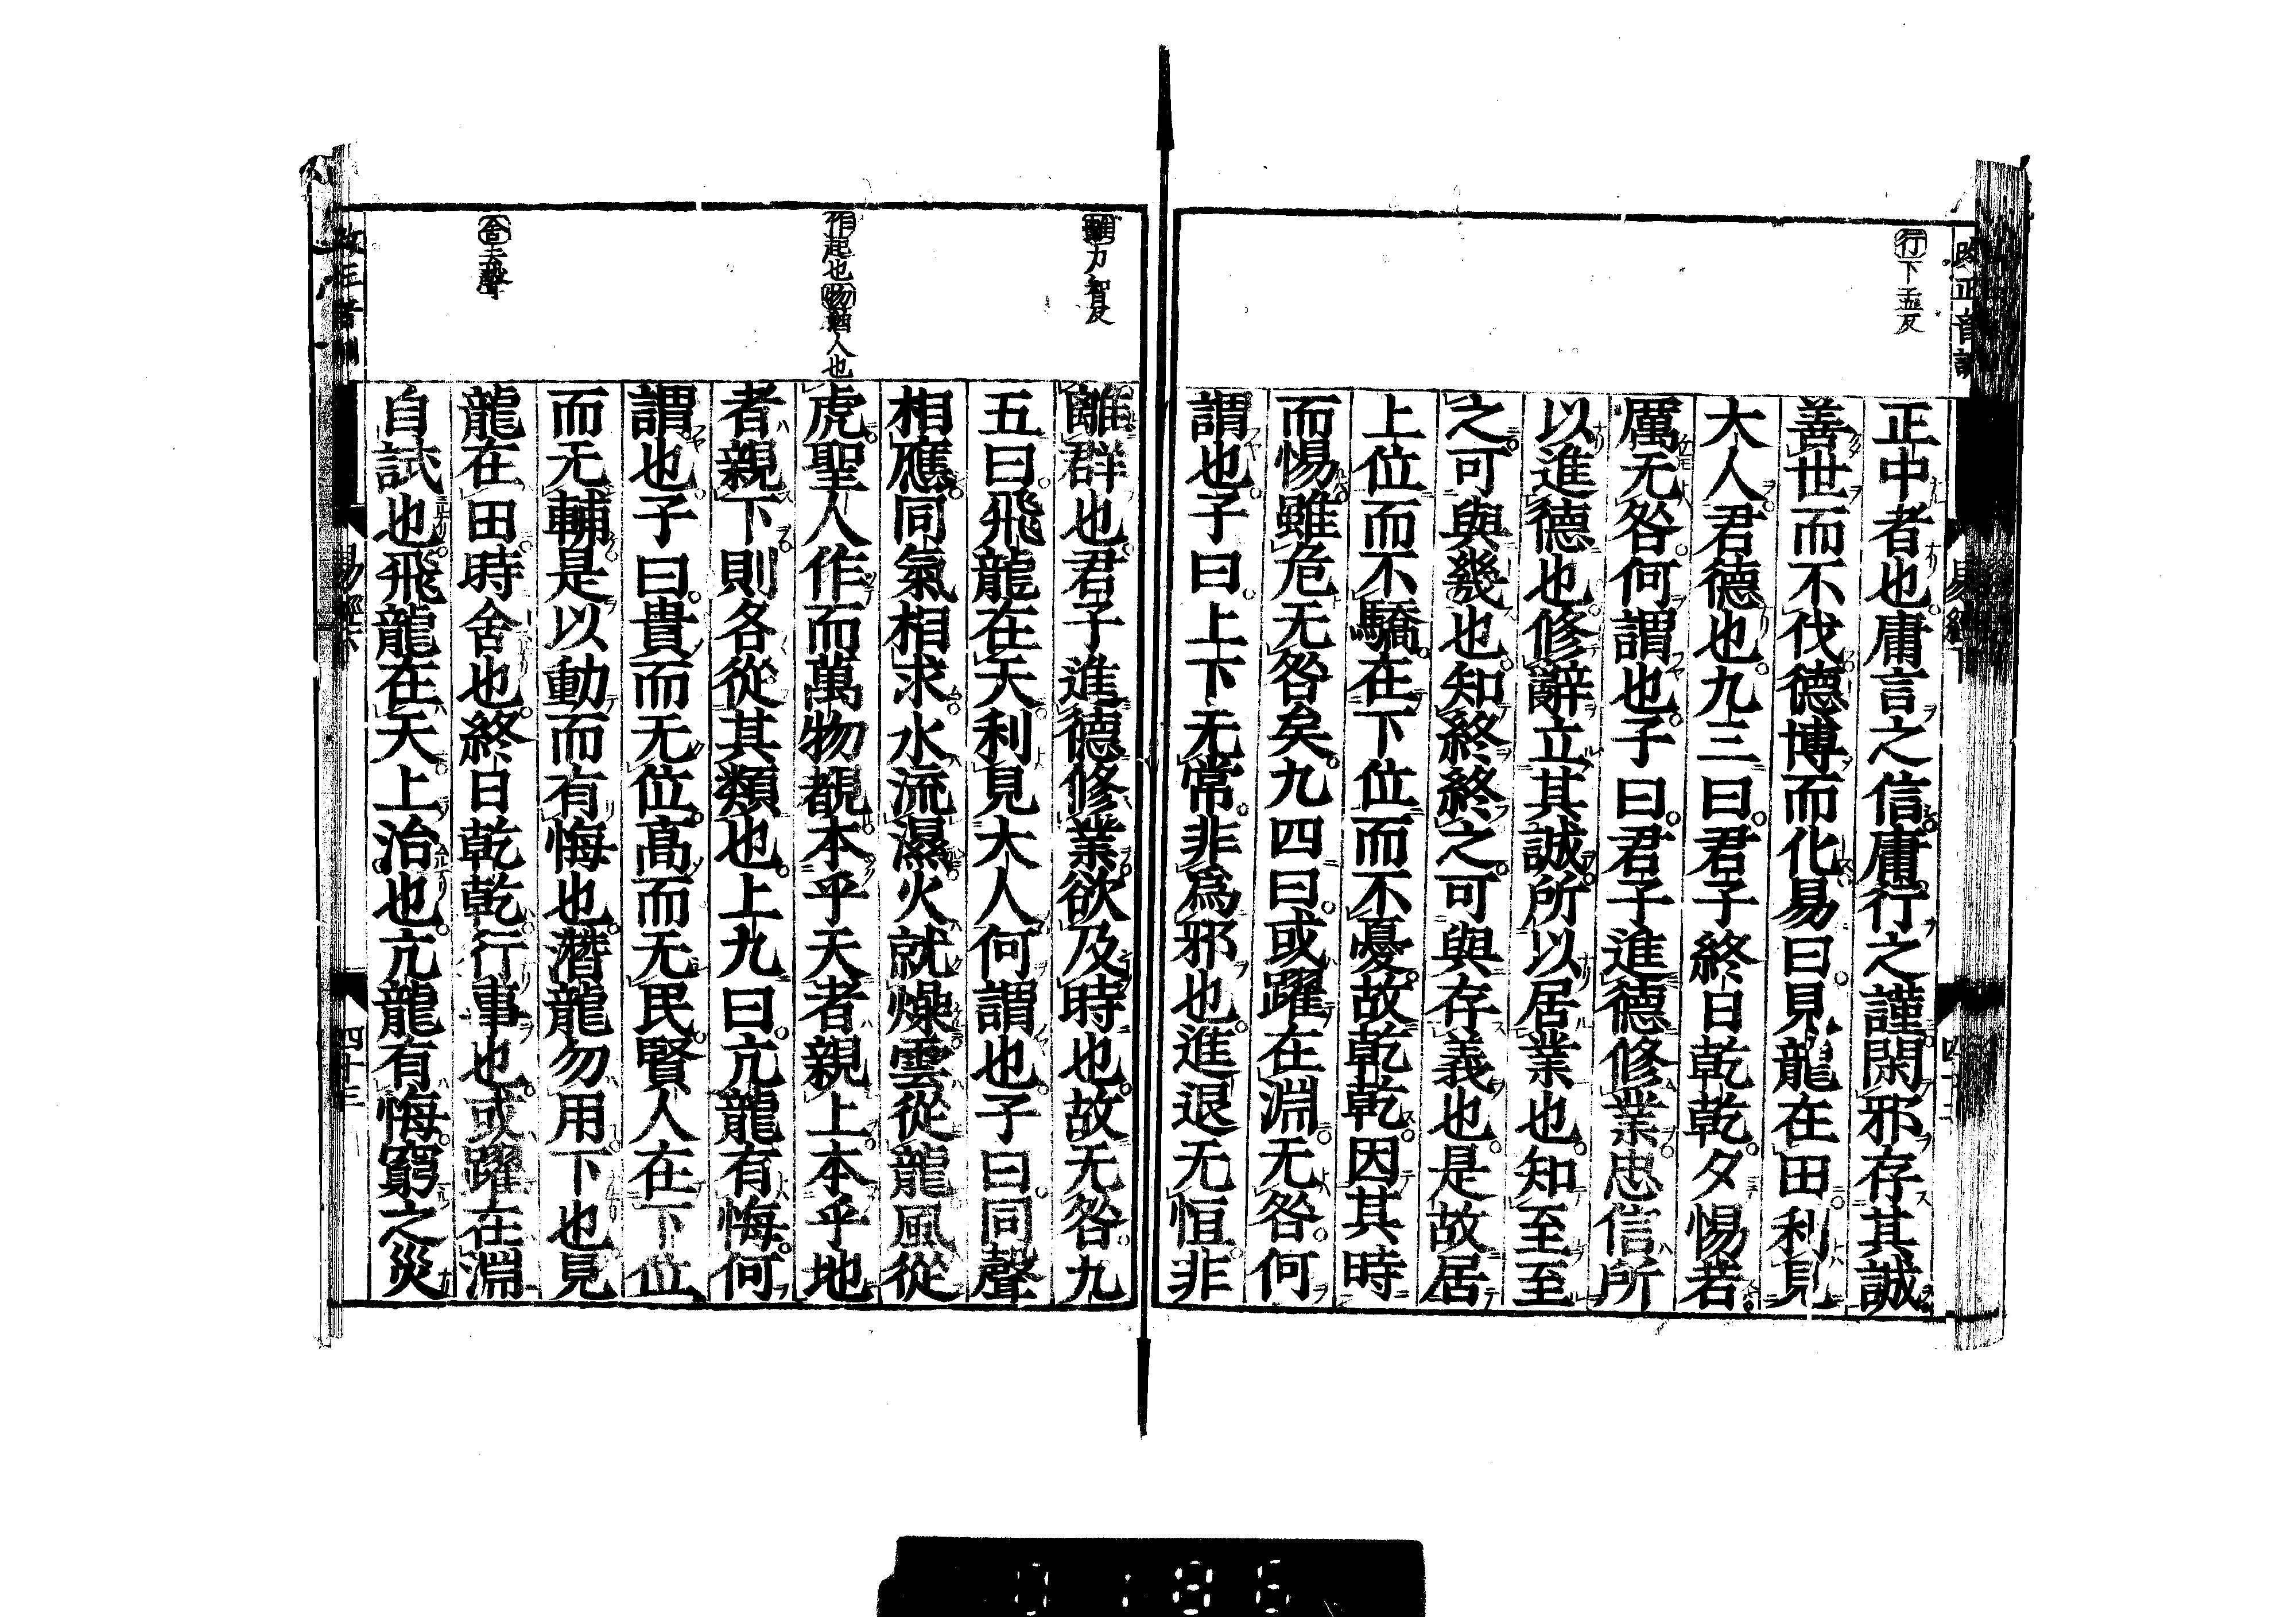 改正音訓
行下孟反
正中者也庸言之信庸行之謹閑邪存其誠
善世而不伐德博而化易曰見龍在田利見
大人君德也九三曰君子終日乾乾夕惕若
厲无咎何謂也子曰君子進德修業忠信所
以進德也修辭立其誠所以居業也知至至
之可與幾也知終終之可與存義也是故居
上位而不驕在下位而不憂故乾乾因其時
而惕雖危无咎矣九四曰或躍在淵无咎何
謂也子曰上下无常非爲邪也進退无恒非
離力智反
離群也君子進德修業欲及時也故无咎九
五曰飛龍在天利見大人何謂也子曰同聲
相應同氣相求水流濕火就燥雲從龍風從
作起也物猶人也
虎聖人作而萬物覩本乎天者親上本乎地
者親下則各從其類也上九曰亢龍有悔何
謂也子曰貴而无位高而无民賢人在下位
而无輔是以動而有悔也潛龍勿用下也見
舍去聲
龍在田時舍也終日乾乾行事也或躍在淵
自試也飛龍在天上治也亢龍有悔窮之災
易經下
四十三